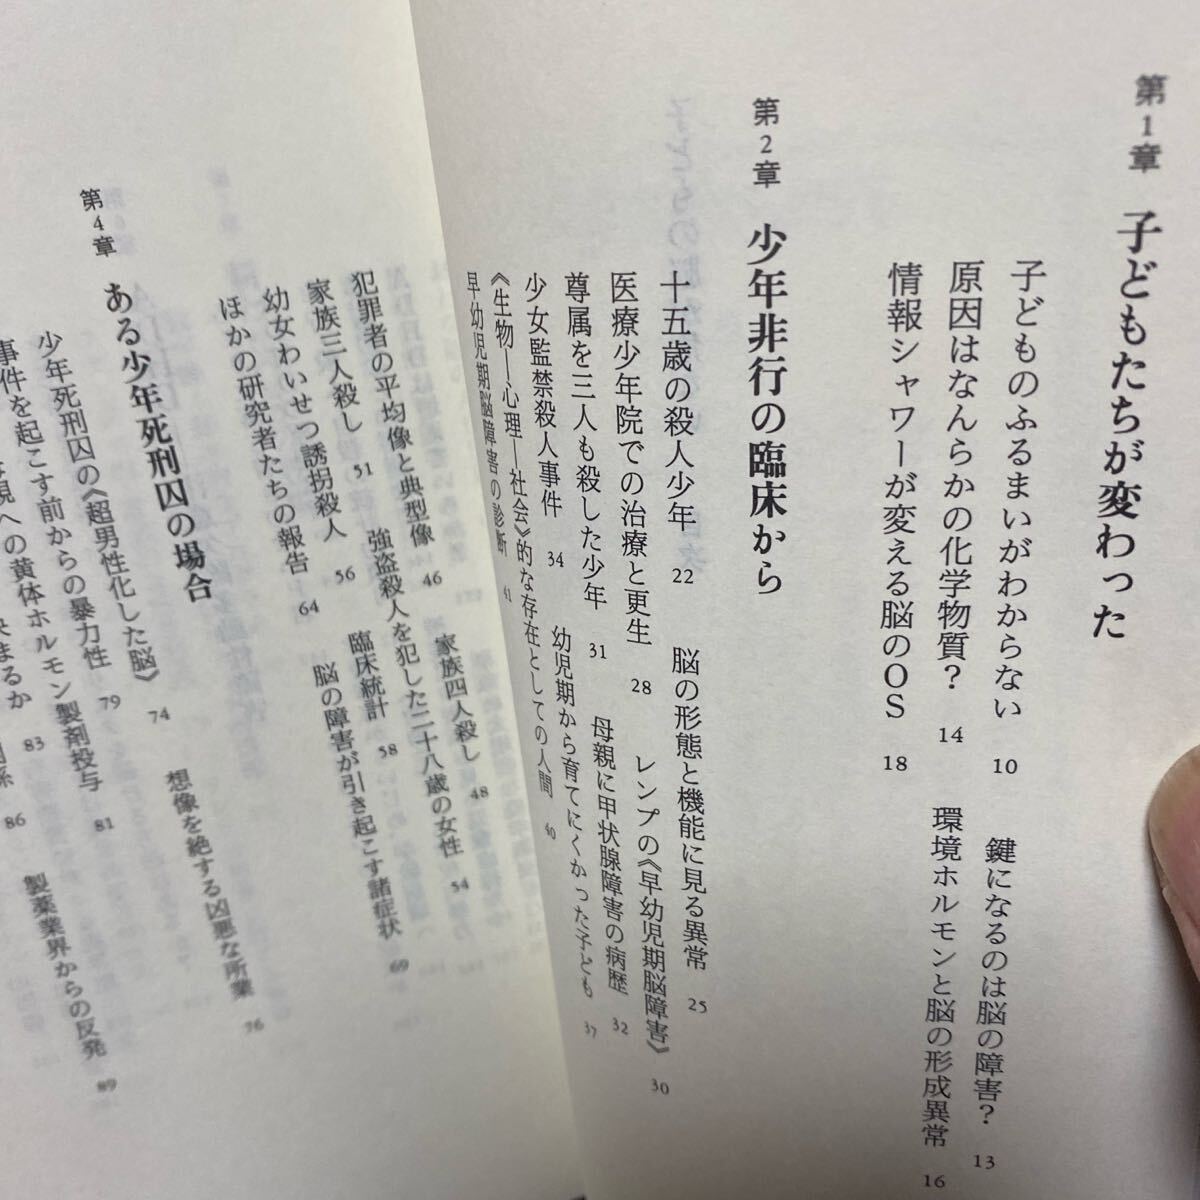 第1章 子どもたちが変わった
子どものふるまいがわからない 10 鍵になるのは脳の障害? 13
原因はなんらかの化学物質? 14 環境ホルモンと脳の形成異常 16
情報シャワーが変える脳のOS 18
第2章 少年非行の臨床から
十五歳の殺人少年 22 脳の形態と機能に見る異常 25
医療少年院での治療と更生 28 レンプの《早幼児期脳障害》 30
尊属を三人も殺した少年 31 母親に甲状腺障害の病歴 32
少女監禁殺人事件 34 幼児期から育てにくかった子ども 37
《生物―心理―社会》的な存在としての人間 40
早幼児期脳障害の診断 41
犯罪者の平均像と典型像 46 家族四人殺し 48
家族三人殺し 51 強盗殺人を犯した二十八歳の女性 54
幼女わいせつ誘拐殺人 56 臨床統計 58
ほかの研究者たちの報告 64 脳の障害が引き起こす諸症状 69
第4章 ある少年死刑囚の場合
少年死刑囚の《超男性化した脳》 74 想像を絶する凶悪な所業 76
事件を起こす前からの暴力性 79
への黄体ホルモン製剤投与 81
決まるか 83
係 86 製薬業界からの反発 89